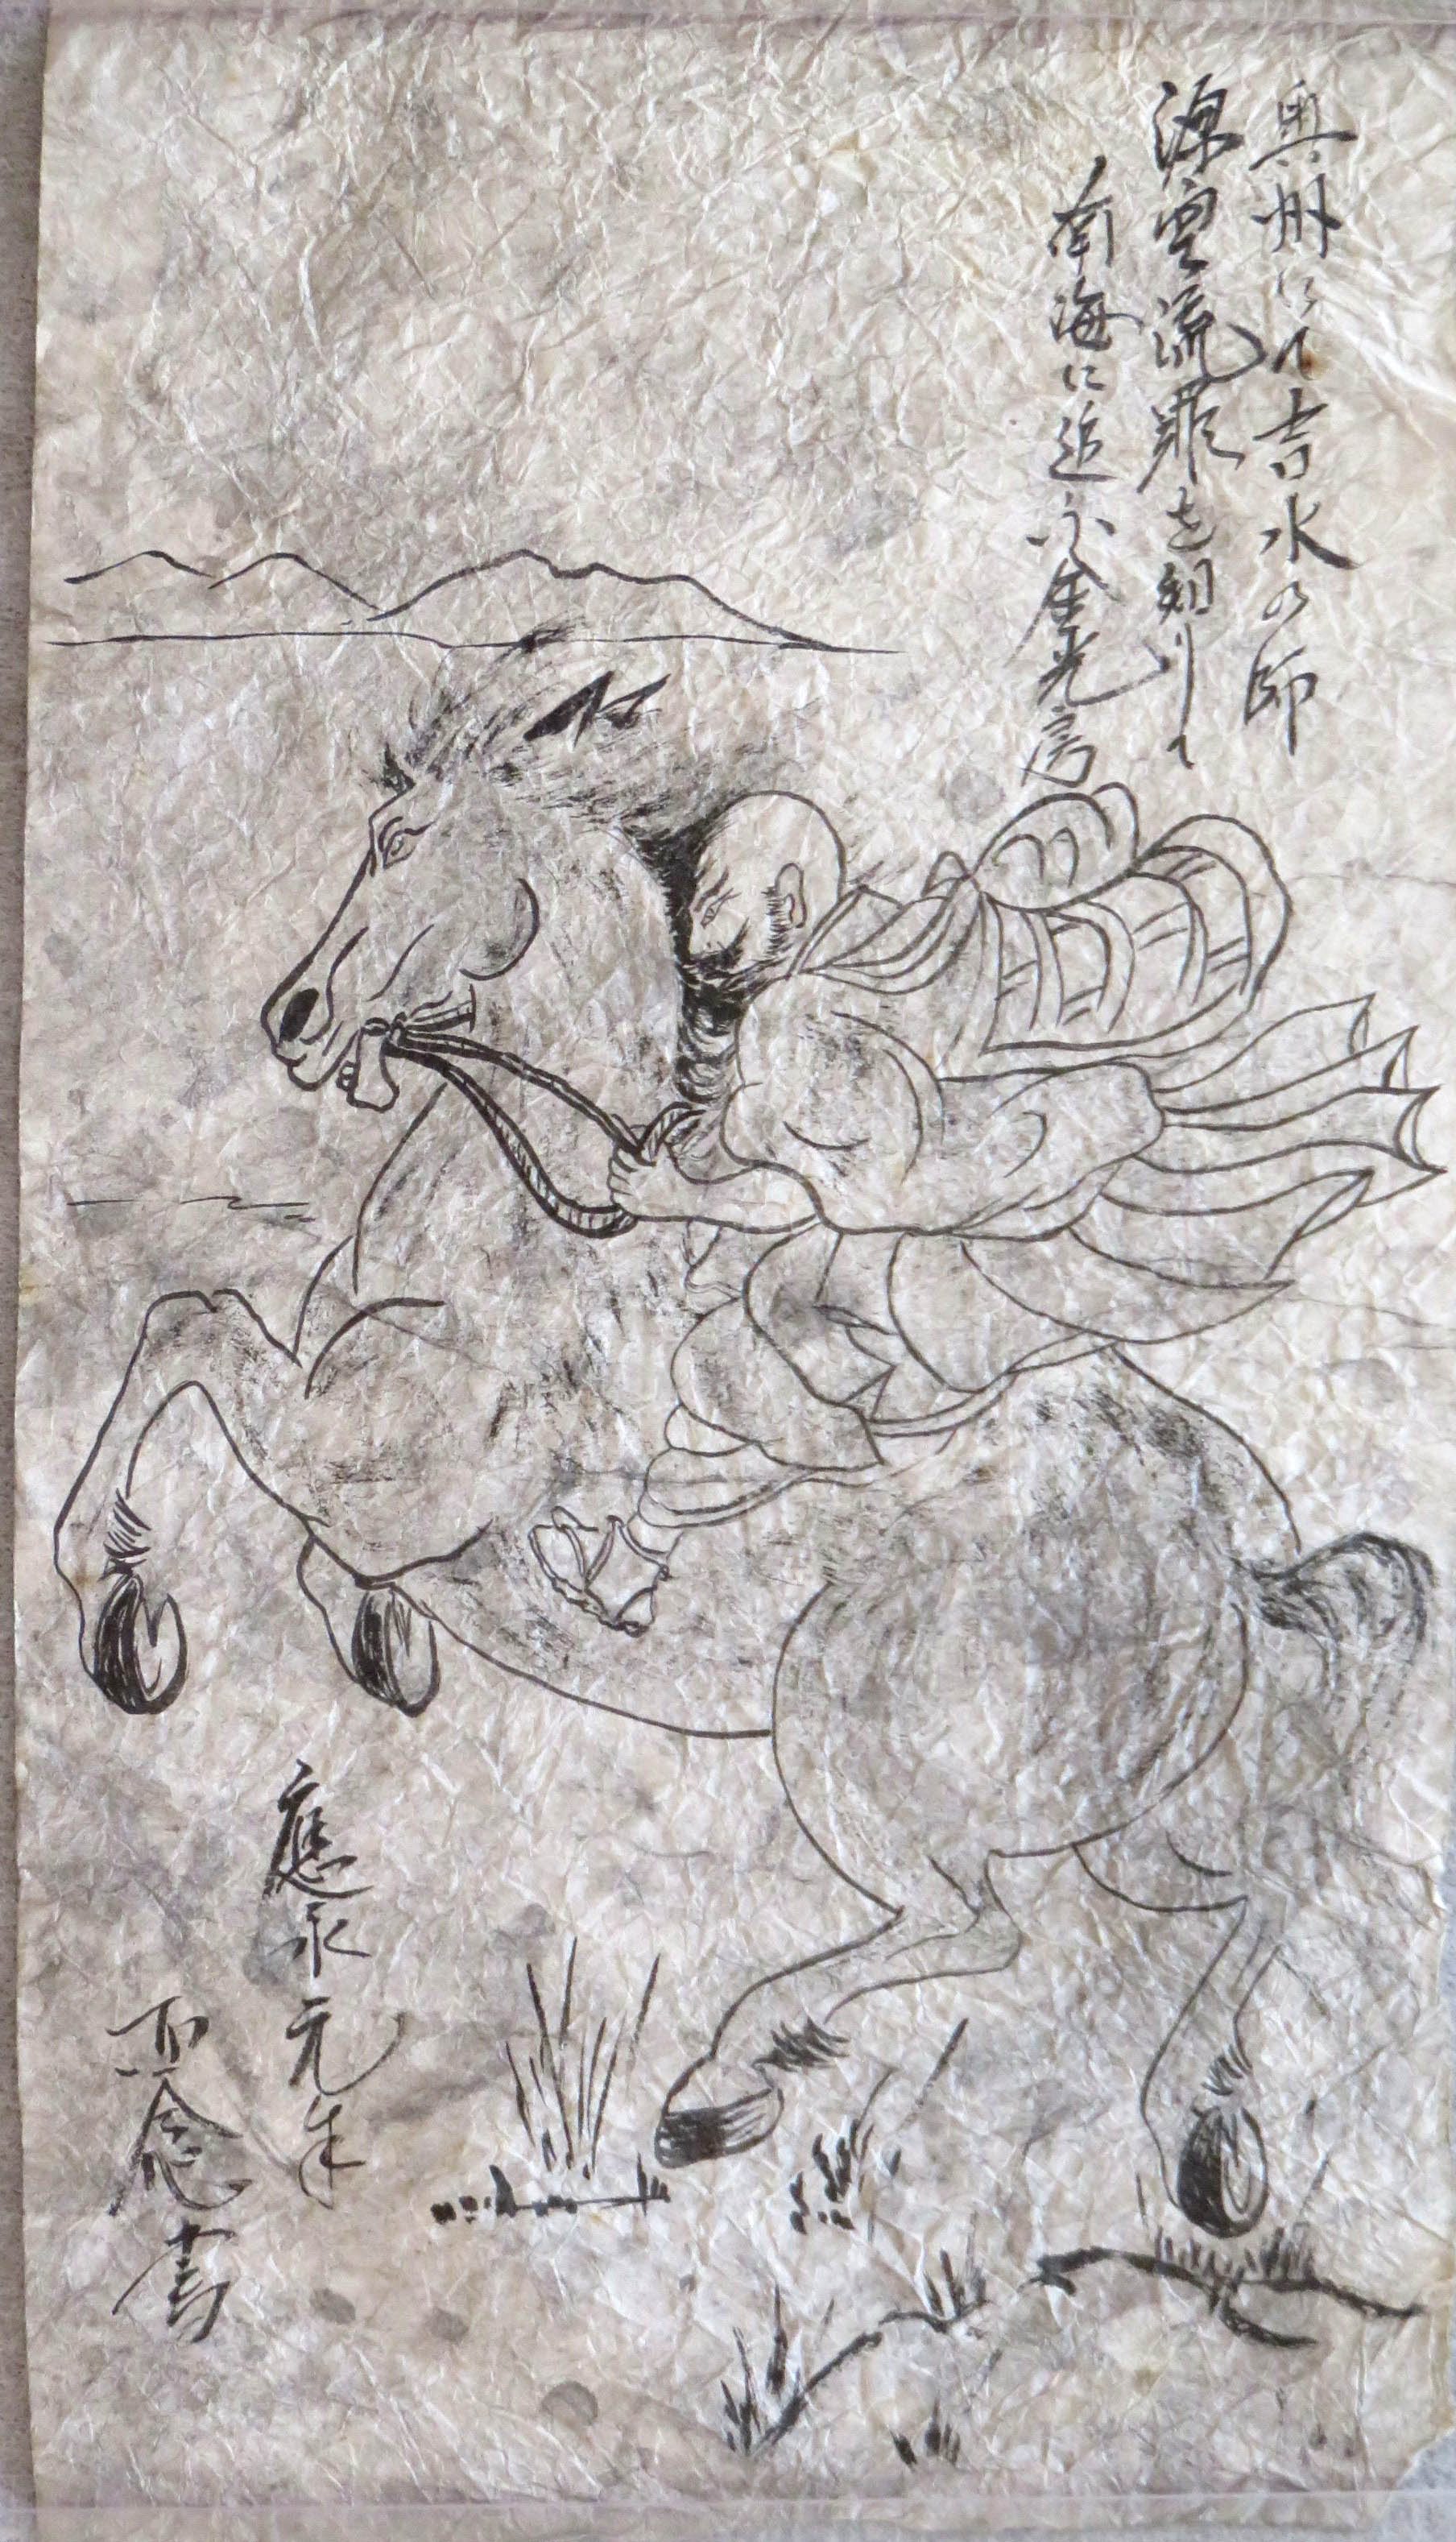 奥州にて吉水の師
源空流罪を知りて
南海に追ふ金光房
應永元年
西念書